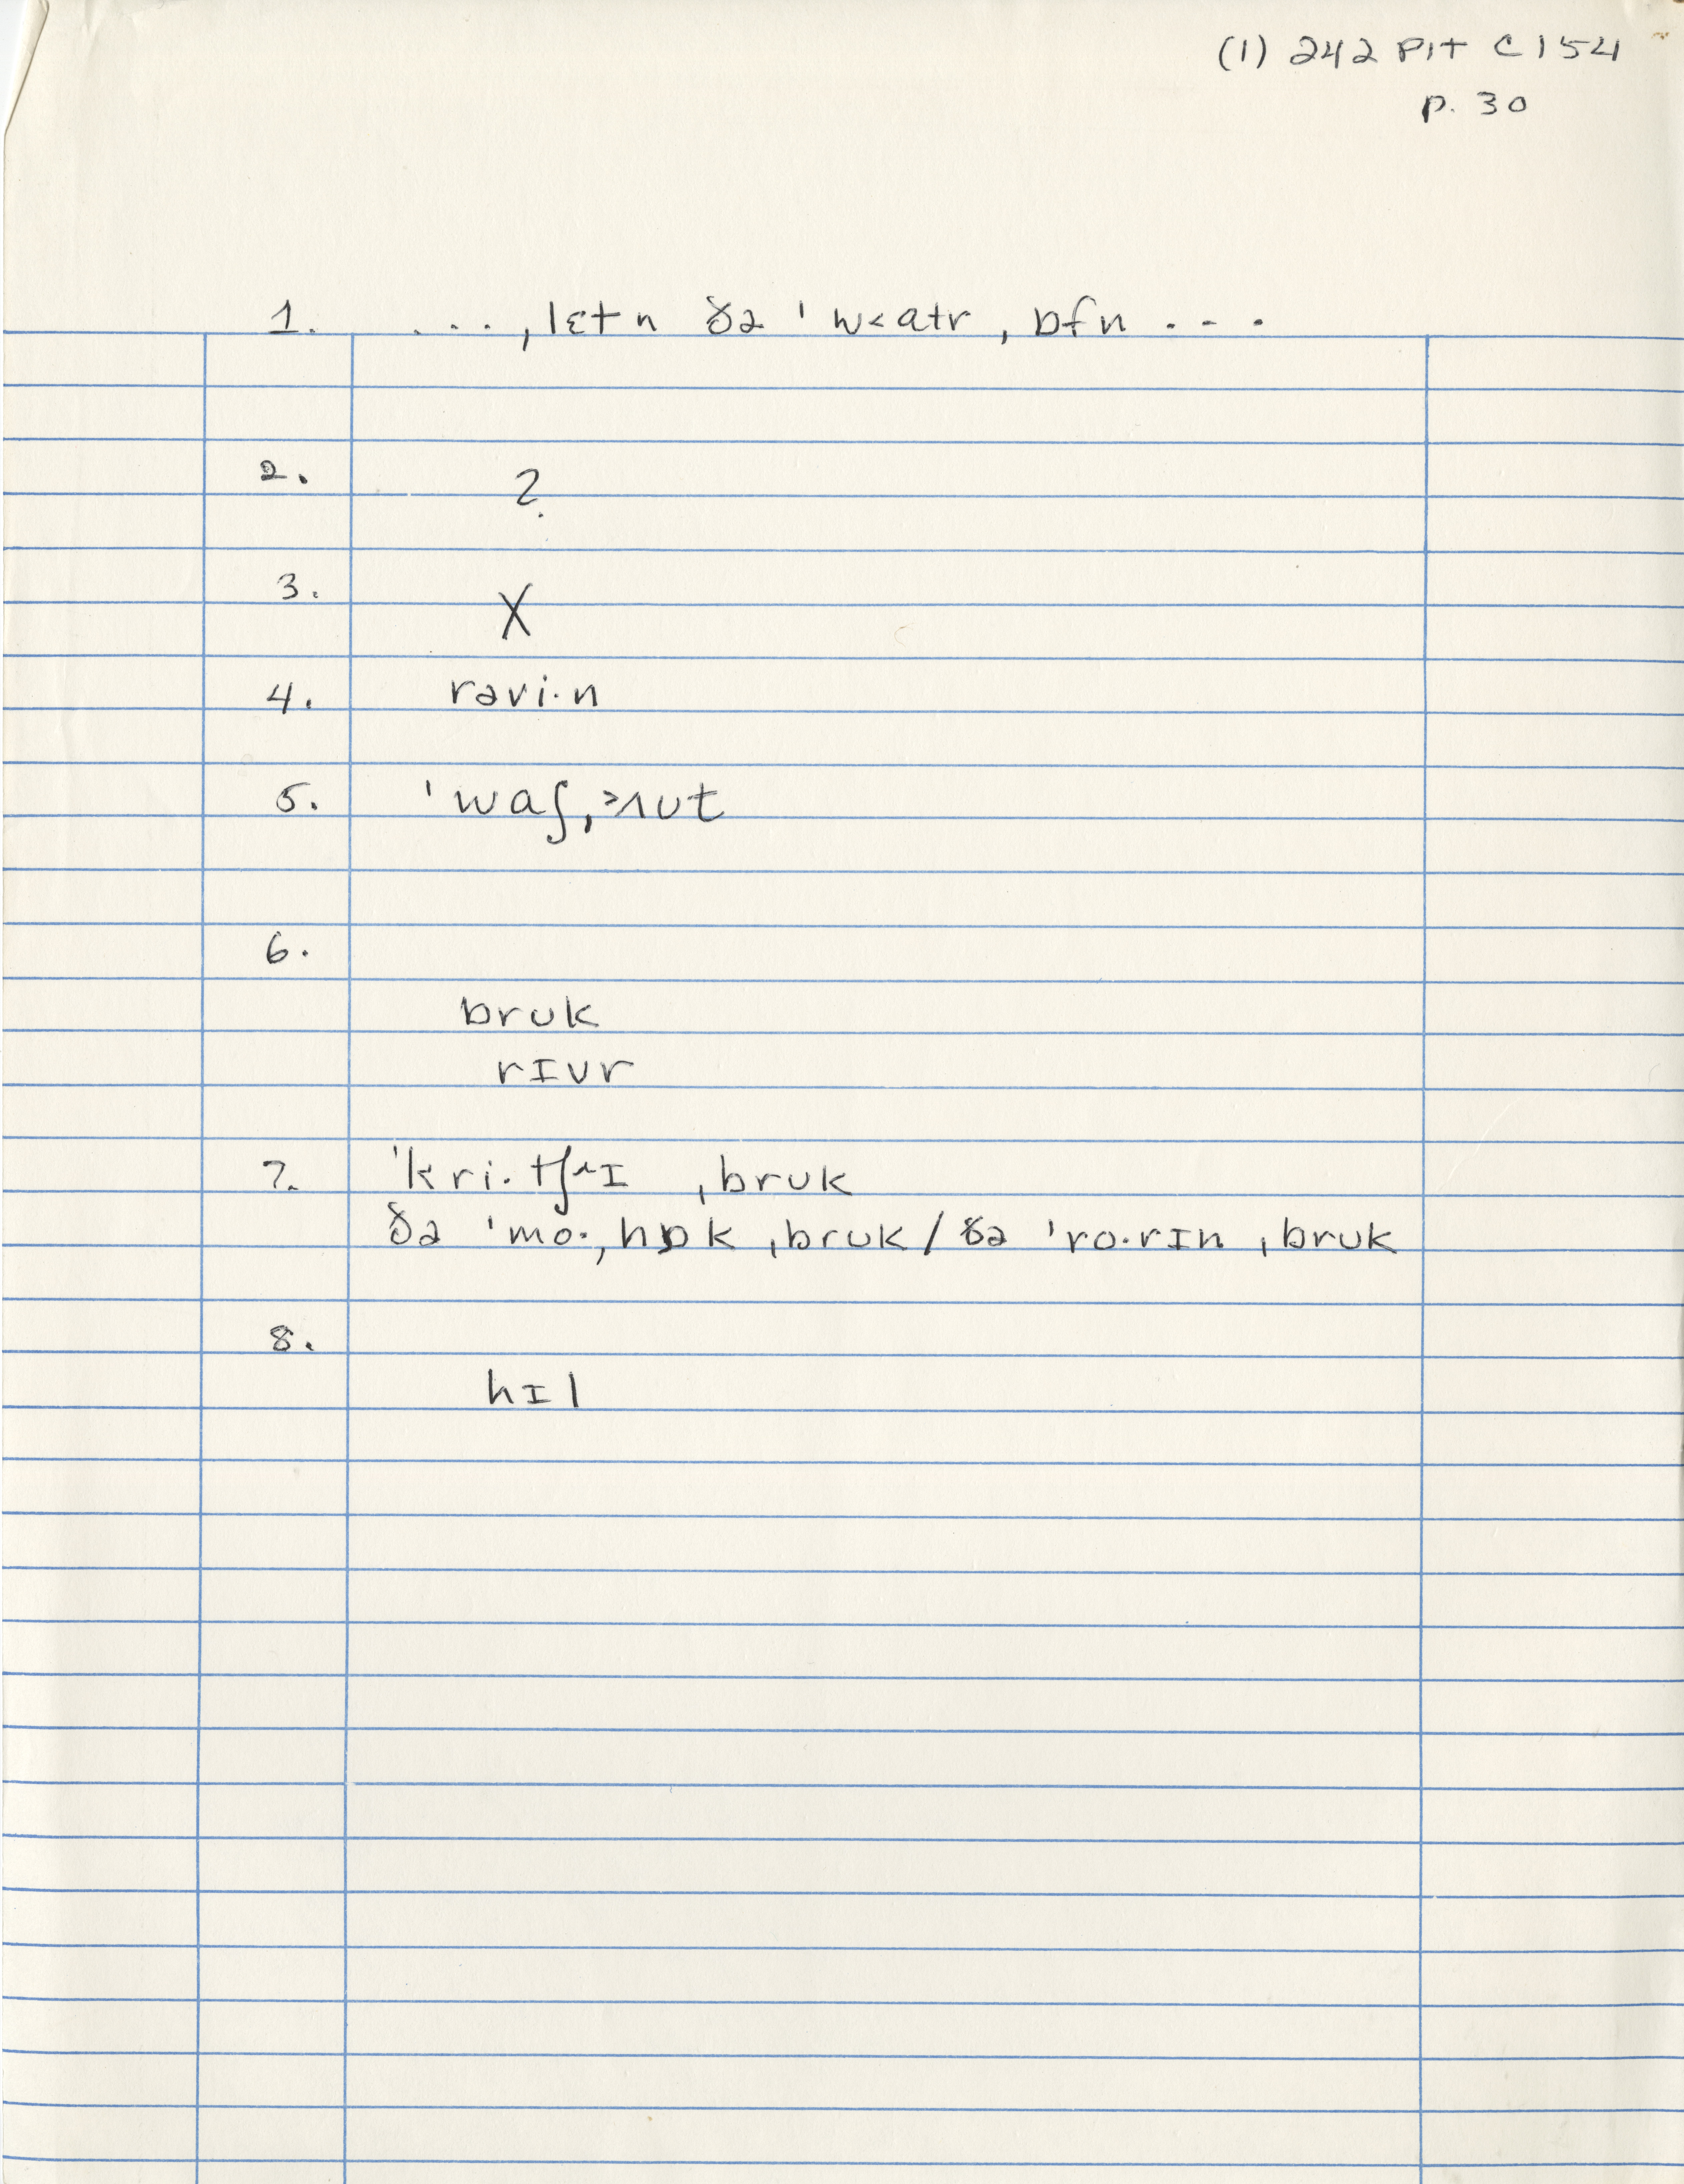 (1) 242 Pit C154
p. 30
1. ...ˌlɛtn ðə ˈw˂atr ˌɒfn ...
2. ?
3. X
4. rəvi·n
5. ˈwaʃˌ˃ʌut
6.
bruk
rɪvr
7. ˈkri·tʃ^ɪ ˌbruk
ðə ˈmo·ˌhɒk ˌbruk / ðə ˈro·rɪn ˌbruk
8.
hɪl